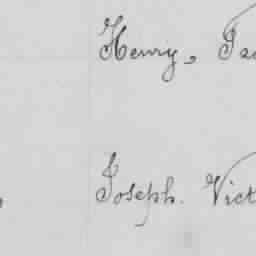 Henry,
Joseph. Vict